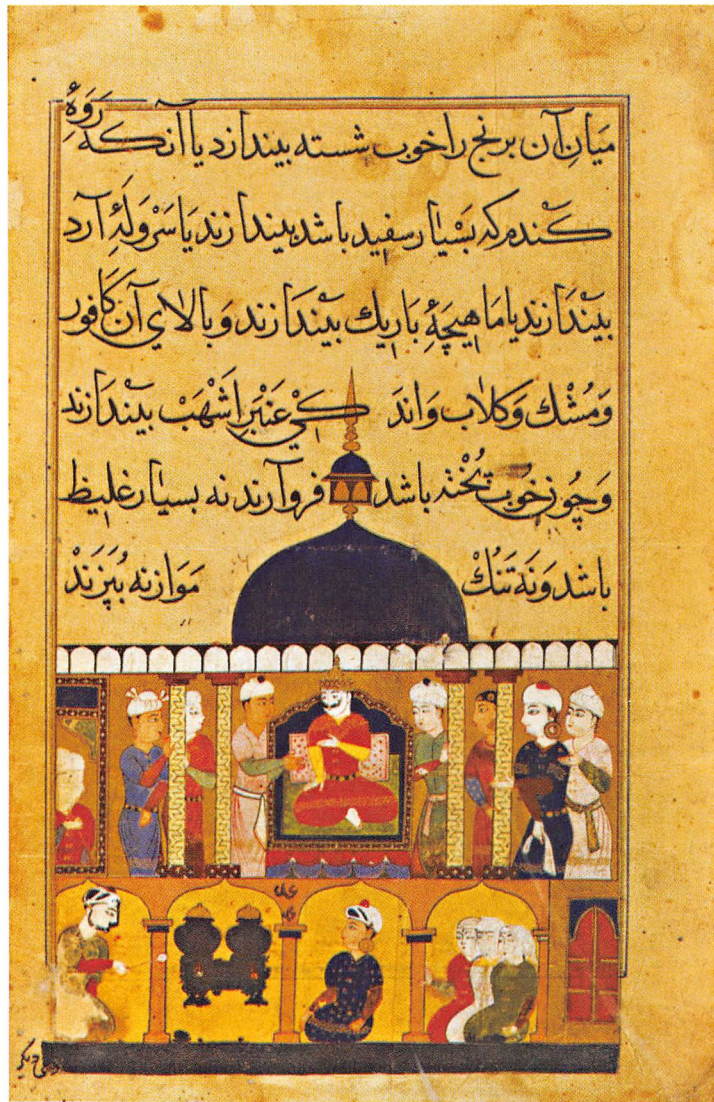 مَیانِ آن برنج را خوب شسته بیندازد یا آنکه رَوَهٔ
کندم که بَسْیار سفید باشد بیندازند یَا سَرْوَلَهٔ آرد
بیَندَازند یا مَاهیچَهٔ بَاریك بیَندَازند وَبالای آن کَافور
وَمُشْك وَکلاب وَاندَ کی عَنْبَرِ اَشْهَبْ بیَندَازند
وَچون خوب پُخْته باشد فروآرند نه بسیار غلیظ
باشد وَنَه تَنُكْ مَوَازنه بُپَزَنْدْ
دیکر